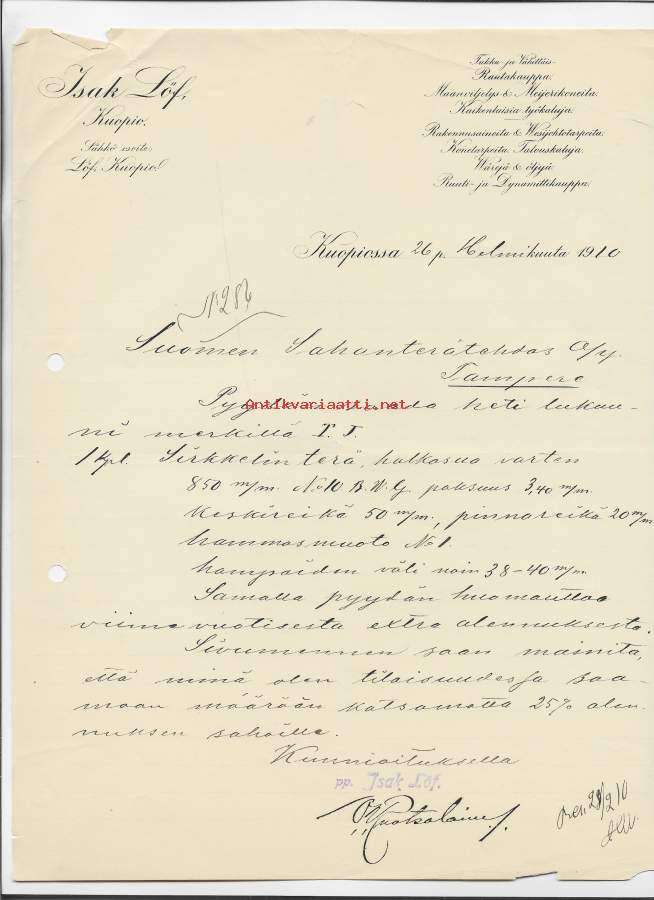 Isak Löf,
Kuopio.
Sähkö osoite:
Löf, Kuopio.
Tukku- ja Vähittäis-
Rautakauppa.
Maanviljelys & Meijerikoneita.
Kaikenlaisia työkaluja.
Rakennusaineita & Wesijohtotarpeita.
Konetarpeita, Talouskaluja.
Wärejä & öljyjä.
Ruuti- ja Dynamittikauppa.
Kuopiossa 26 p. Helmikuuta 1910
Suomen Sahanterätehdas O/y.
Tampere
Antikvariaatti.net
heti lukuu-
ni merkillä T. T.
1 Kpl. Sirkkelin terä, halkosua varten
850 m/m. No 10 B.W.G. paksuus 3,40 m/m.
Keskireikä 50 m/m., pinnareikä 20 m/m
hammasmuoto No 1.
hampaiden väli noin 38-40 m/m.
Samalla pyydän huomauttaa
viime vuotisesta extra alennuksesta.
Sivumennen saan mainita,
että minä olen tilaisuudessa saa-
maan määrään katsomatta 25% alen-
nuksen sahoilla.
Kunnioituksella
pp. Isak Löf.